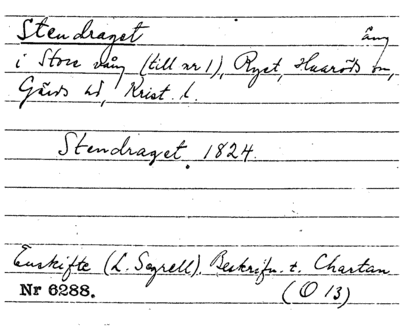 Stendraget äng
i Stora vång (till nr 1), Ryet, Huaröds sn,
Gärds hd, Krist. l.
Stendraget 1824.
Enskifte (L. Sagrell). Beskrifn. t. Chartan
Nr 6288. (O 13)